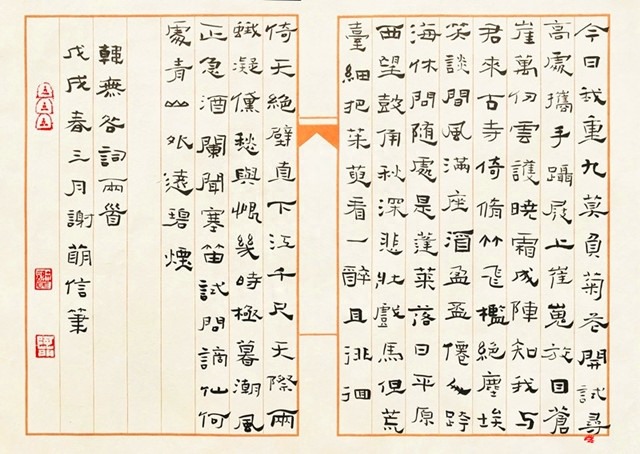 今日我重九莫負菊花開試尋
高處攜手躡屐上崔嵬放目蒼
崖萬仞雲護曉霜成陣知我與
君來古寺倚脩竹飛檻絕塵埃
笑談間風滿座酒盈盃僊人跨
海休問隨處是蓬萊落日平原
西望鼓角秋深悲壯戲馬但荒
臺細把茱萸看一醉且徘徊
倚天絕壁直下江千尺天際兩
蛾凝黛愁與恨幾時極暮潮風
正急酒闌聞塞笛試問謫仙何
處青山外遠碧煙
韓無咎詞兩首
戊戌春三月謝萌信筆